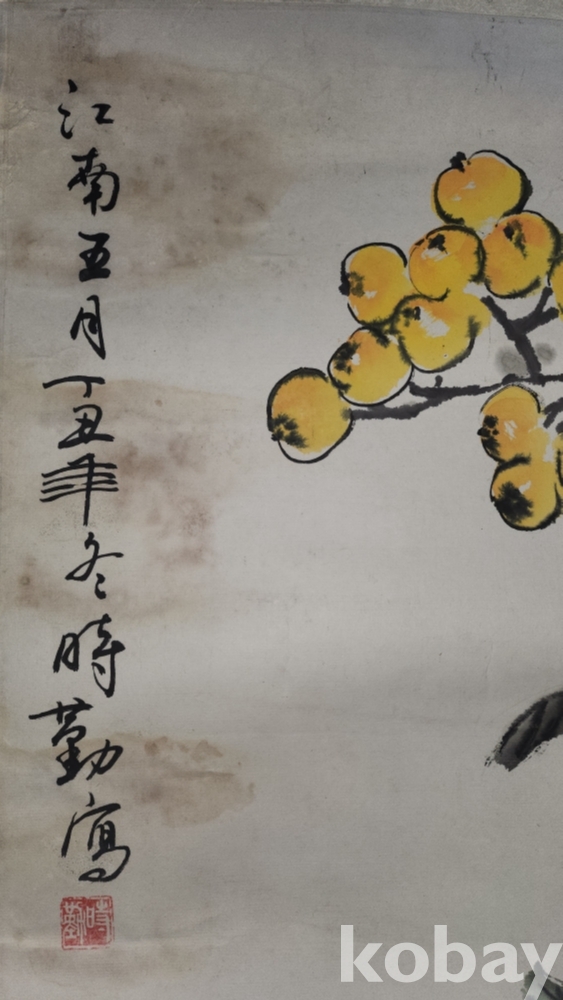 江南五月丁丑年冬時勤寫
時勤
kobay